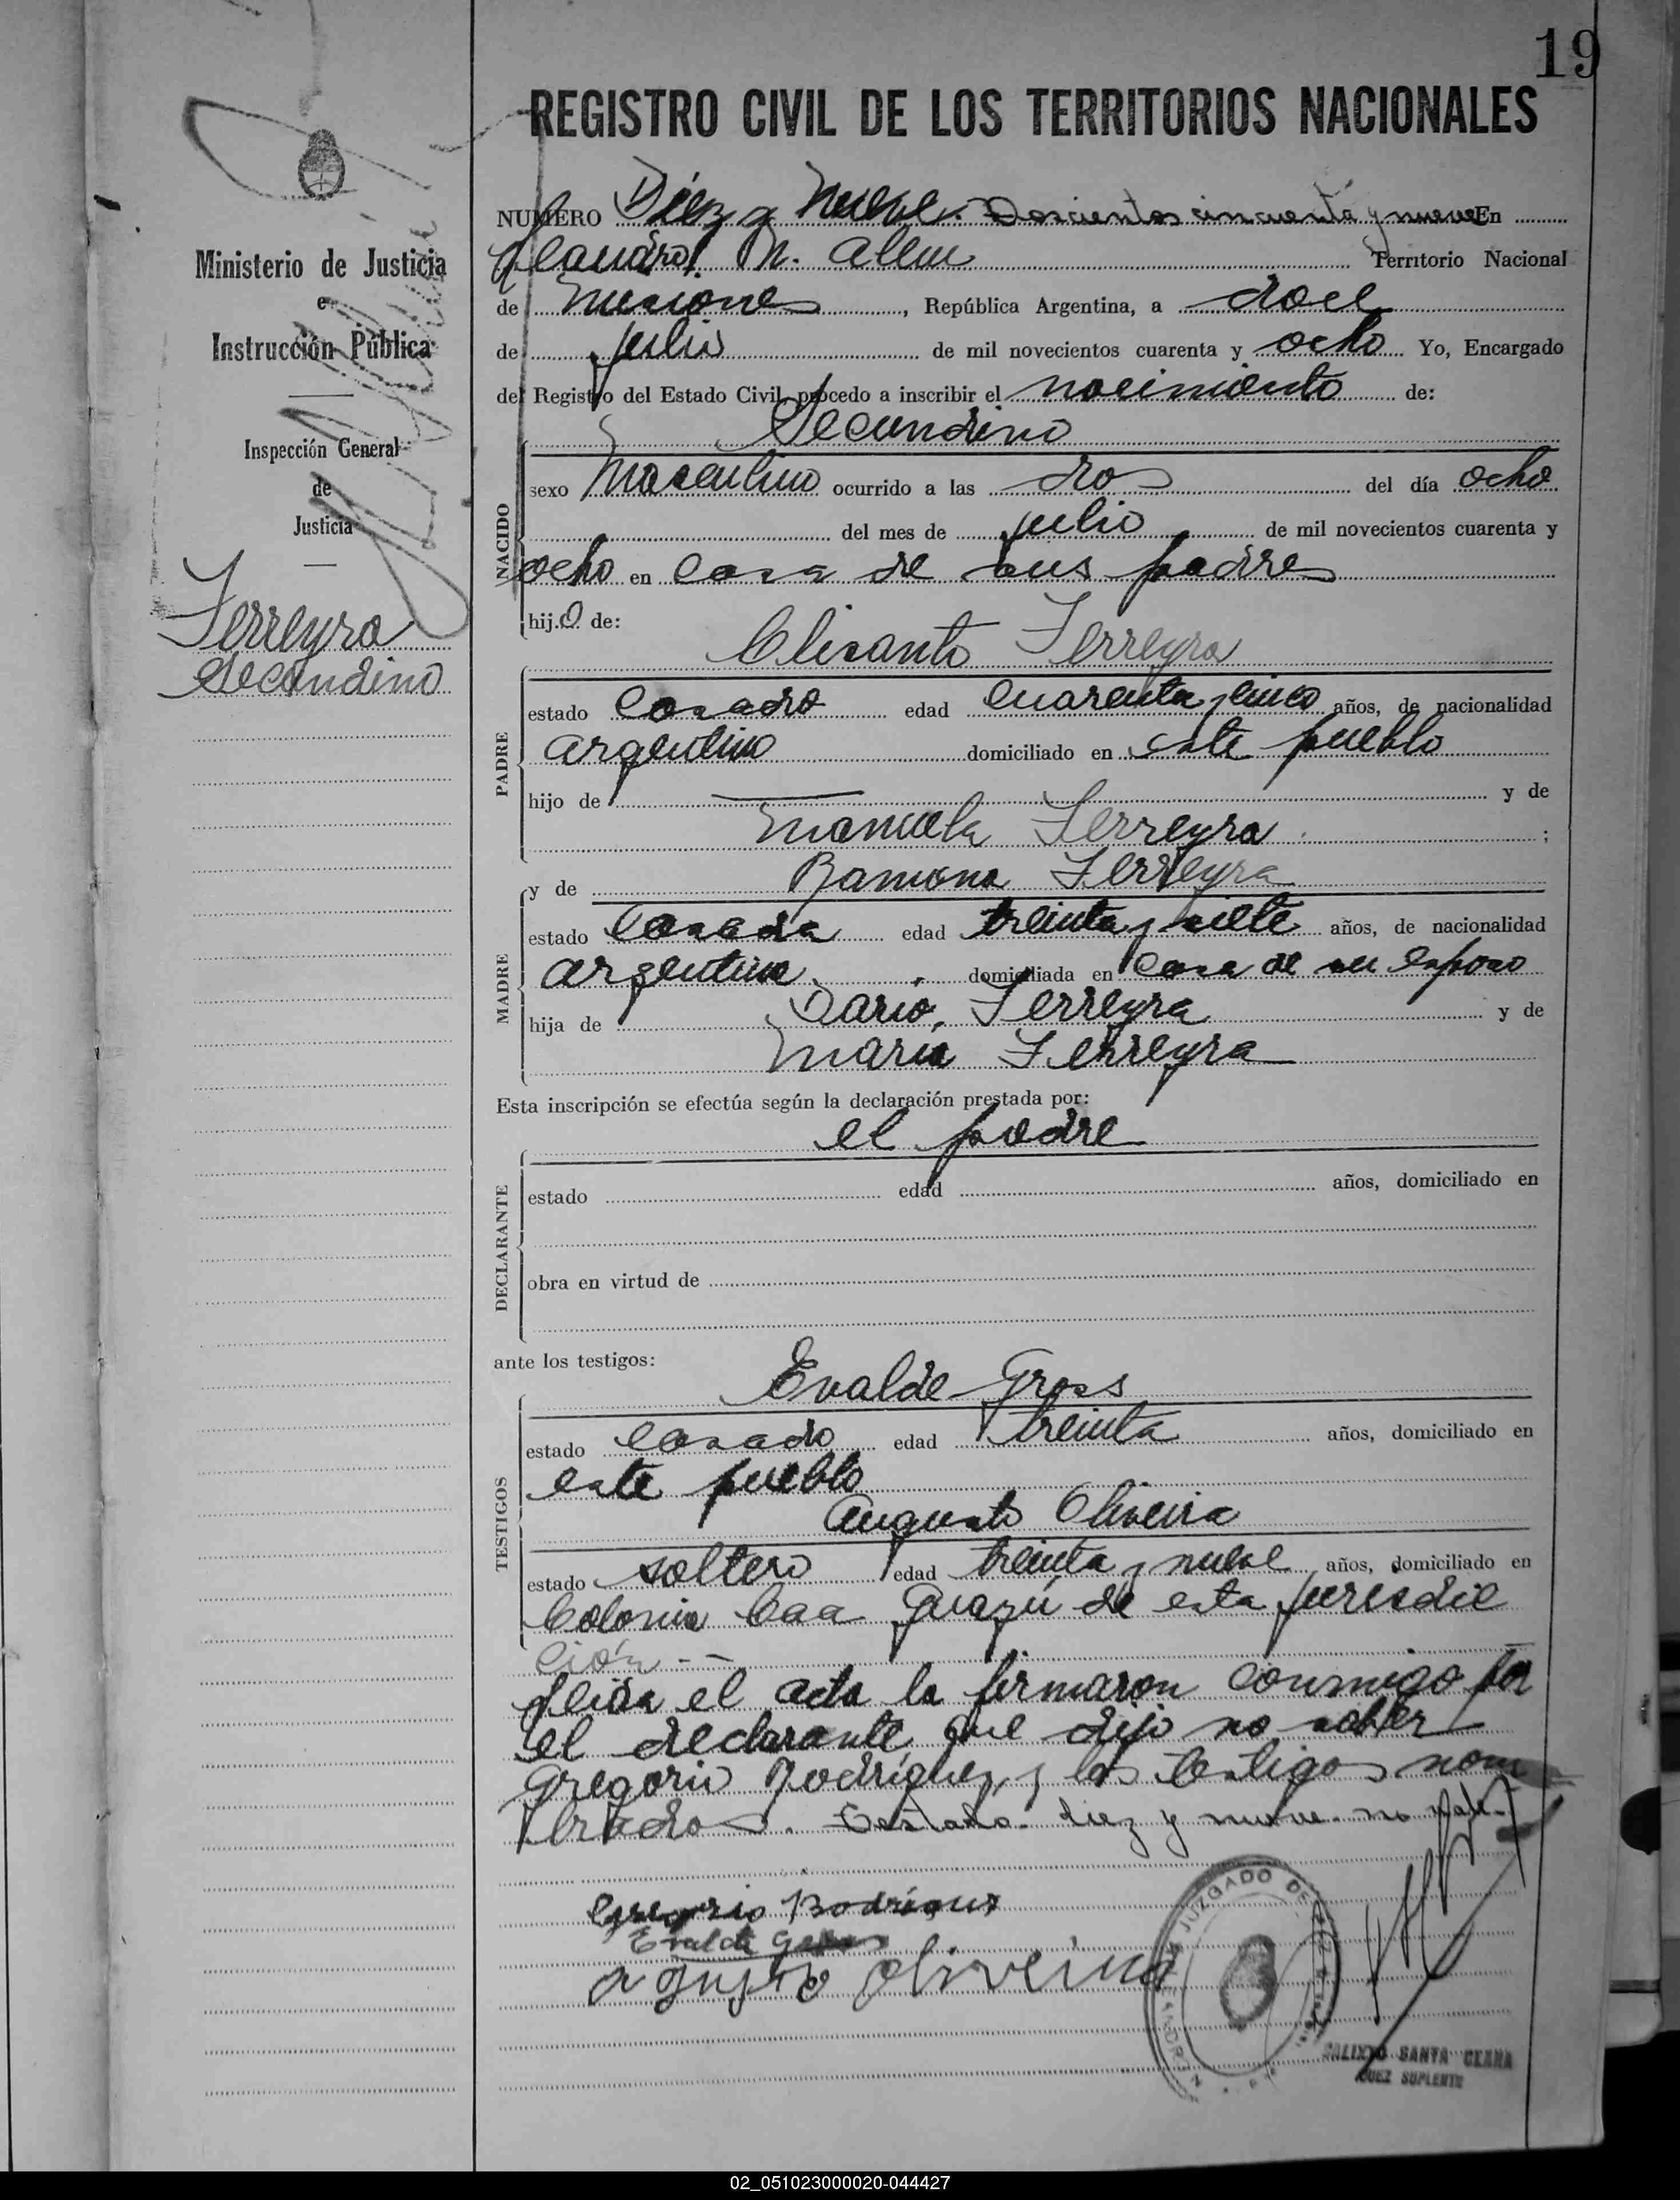 19
REGISTRO CIVIL DE LOS TERRITORIOS NACIONALES
NUMERO Diez y nueve. Doscientos cincuenta y nueve En
Leandro N. Alem Territorio Nacional
de Misiones, República Argentina, a doce
de julio de mil novecientos cuarenta y ocho Yo, Encargado
del Registro del Estado Civil, procedo a inscribir el nacimiento de:
Secundino
NACIDO
sexo Masculino ocurrido a las dos del día ocho
del mes de julio de mil novecientos cuarenta y
ocho en casa de sus padres
hijo de:
Clisanto Ferreyra
PADRE
estado Casado edad cuarenta y cinco años, de nacionalidad
argentino domiciliado en este pueblo
hijo de y de
Manuela Ferreyra ;
y de Ramona Ferreyra
MADRE
estado Casada edad treinta y siete años, de nacionalidad
argentina domiciliada en casa de su esposo
hija de Dario Ferreyra y de
Maria Ferreyra
Esta inscripción se efectúa según la declaración prestada por:
el padre
DECLARANTE
estado edad años, domiciliado en
obra en virtud de
ante los testigos:
Evalde Gross
TESTIGOS
estado casado edad treinta años, domiciliado en
este pueblo
Augusto Oliveira
estado soltero edad treinta y nueve años, domiciliado en
Colonia Caa Guazú de esta jurisdic
ción --
Leida el acta la firmaron conmigo por
el declarante que dijo no saber
Gregorio Rodríguez, y los testigos nom
brados. Testado. diez y nueve. no vale.
Gregorio Rodriguez
Evalde Gross
agusto oliveira
JUZGADO DE PAZ
CALIXTO SANTA CLARA
JUEZ SUPLENTE
Ministerio de Justicia
e
Instrucción Pública
Inspección General
de
Justicia
Ferreyra
Secundino
02_051023000020-044427